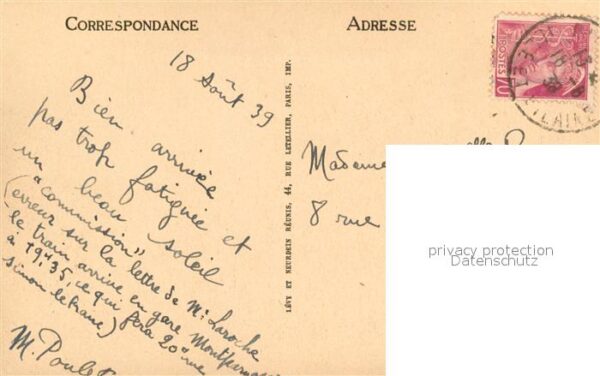 CORRESPONDANCE
ADRESSE
18 Août 39
Bien arrivée
pas trop fatiguée et
un beau soleil
"commission"
(erreur sur la lettre de Mr Laroche
le train arrive en gare Montparnasse
à 19h35, ce qui fera 20h rue
Simon lefranc)
M. Poulet
LÉVY ET NEURDEIN RÉUNIS, 44, RUE LETELLIER, PARIS, IMP.
Madame
8 rue
POSTES
70
privacy protection
Datenschutz